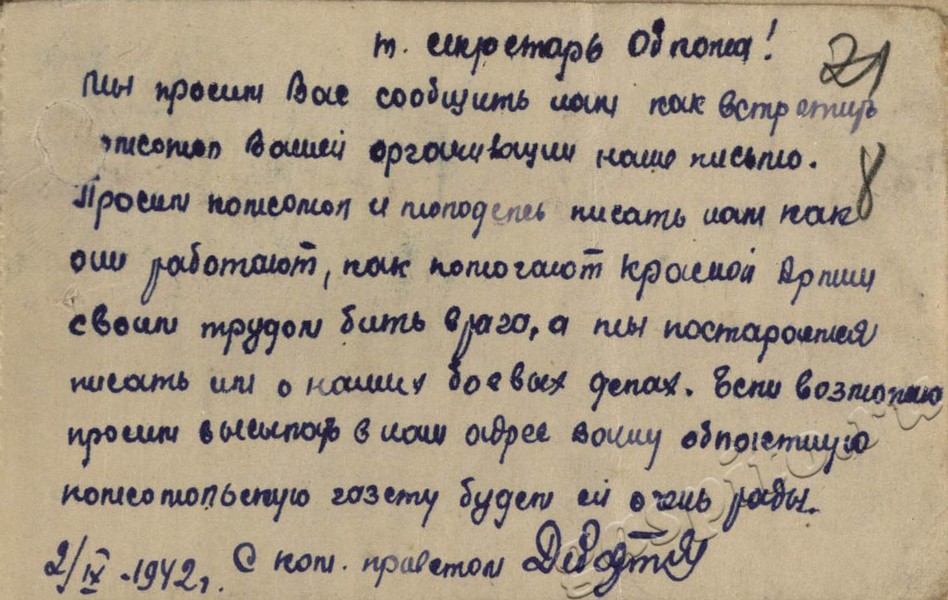 т. секретарь Обкома!
21
Мы просим Вас сообщить нам как встретит
комсомол Вашей организации наше письмо.
8
Просим комсомол и молодежь писать нам как
они работают, как помогают Красной Армии
своим трудом бить врага, а мы постараемся
писать им о наших боевых делах. Если возможно
просим высылать в наш адрес Вашу областную
комсомольскую газету будем ей очень рады.
2/IX-1942г. С ком. приветом